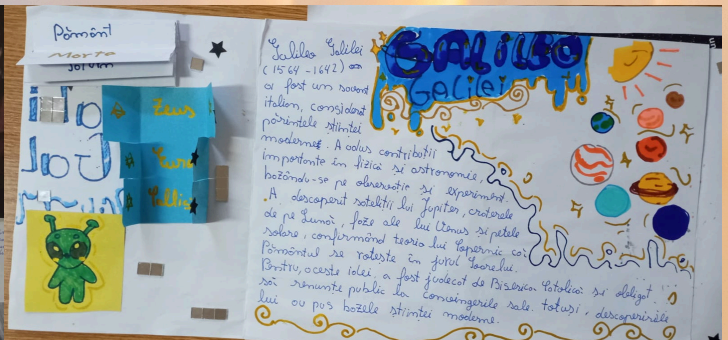 Pământ
Marte
Zeus
Galileo Galilei
(1564-1642)
a fost un savant
italian, considerat
părintele științei
moderne. A adus contribuții
importante în fizică și astronomie,
bazându-se pe observație și experiment.
A descoperit sateliții lui Jupiter, craterele
de pe Lună, faze ale lui Venus și petele
solare, confirmând teoria lui Copernic că
Pământul se rotește în jurul Soarelui.
Pentru aceste idei, a fost judecat de Biserica Catolică și obligat
să renunțe public la convingerile sale. totuși, descoperirile
lui au pus bazele științei moderne.
GALILEO
Galilei